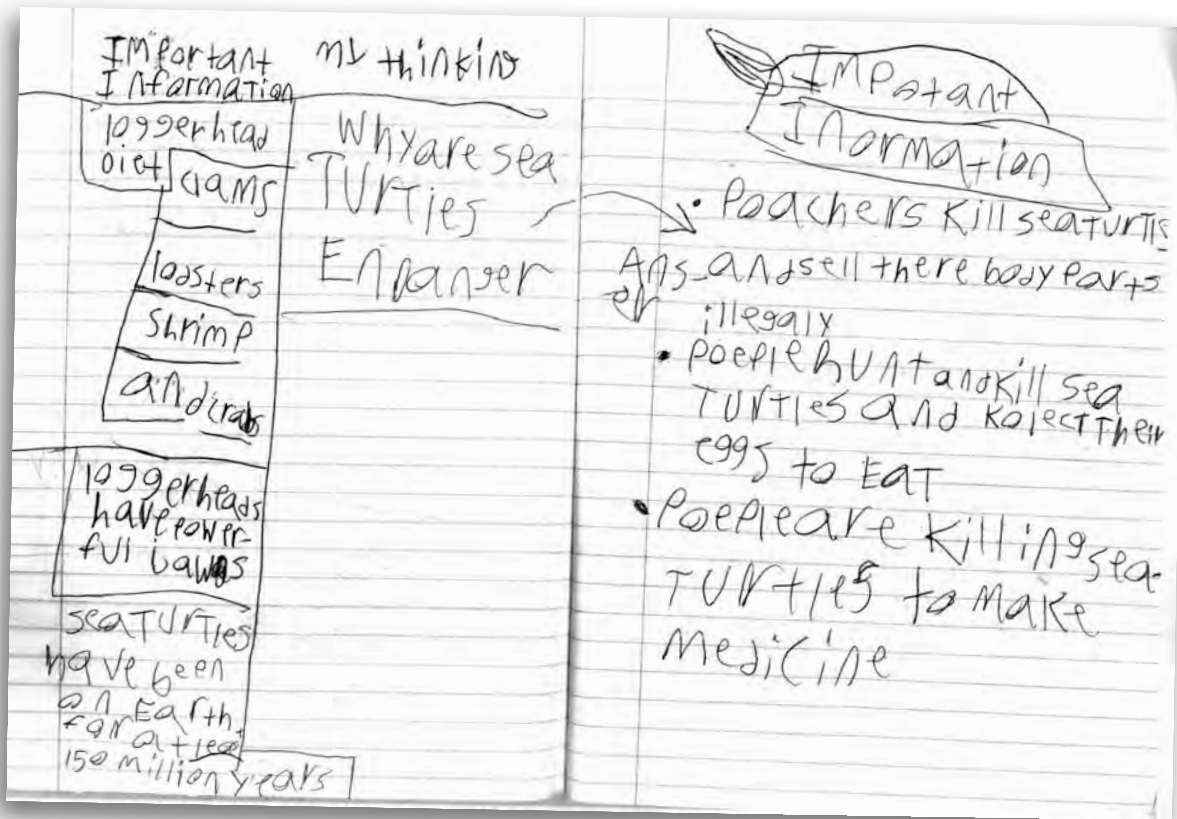 Important
Information
loggerhead
Diet
clams
lobsters
Shrimp
and crabs
loggerheads
have power-
ful jawas
sea TURTles
have been
on Earth
for at least
150 million years
my thinking
Why are sea
TURTles
Endanger
Impotant
Inormation
• Poachers Kill sea TURTls
Ans and sell there body parts
er illegaly
• Poeple hUnt and Kill sea
TURTles and Kolect their
eggs to EaT
• Poeple are Killing sea-
TURTles to Make
Medicine